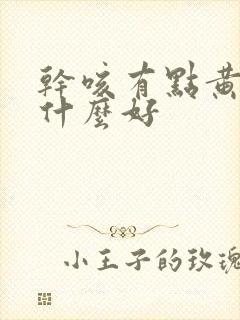 幹咳有點黃
什麼好
小王子的玫瑰